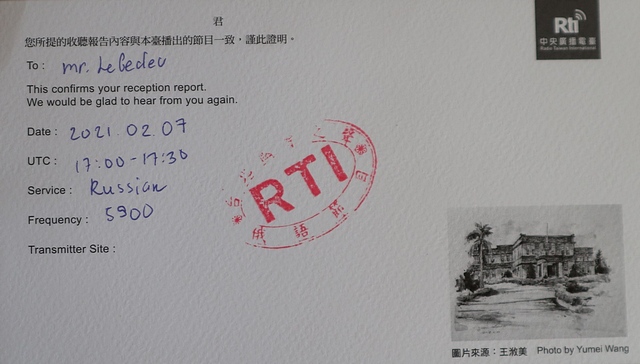 君
您所提的收聽報告內容與本臺播出的節目一致,謹此證明。
To : mr. Lebedev
This confirms your reception report.
We would be glad to hear from you again.
Date : 2021.02.07
UTC : 17:00-17:30
Service : Russian
Frequency : 5900
Transmitter Site :
Rti
中央廣播電臺
Radio Taiwan International
RTI
俄語節目
圖片來源:王淑美 Photo by Yumei Wang